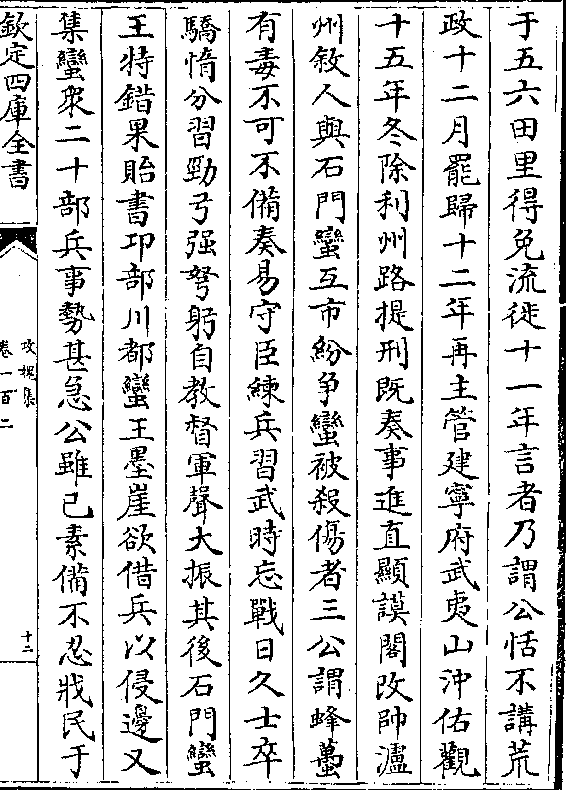 于五六田里得免流徙十一年言者乃謂公恬不講荒
政十二月罷歸十二年再主管建寧府武夷山沖佑觀
十五年冬除利州路提刑既奏事進直顯謨閣改帥瀘
州敘人與石門蠻互市紛爭蠻被殺傷者三公謂蜂蠆
有毒不可不備奏易守臣練兵習武時忘戰日久士卒
驕惰分習勁弓强弩躬自教督軍聲大振其後石門蠻
王特錯果貽書卭部川都蠻王墨崖欲借兵以侵邊又
集蠻衆二十部兵事勢甚急公雖已素備不忍戕民于
欽定四庫全書
攻媿集
卷一百二
十二